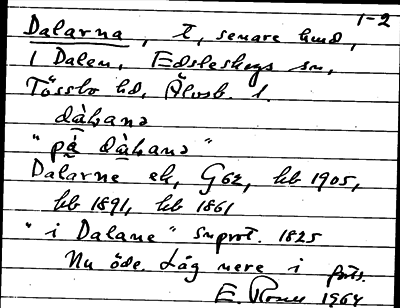 1-2
Dalarna, t, senare hmd,
i Dalen, Edsleskogs sn,
Tössbo hd, Älvsb. l.
dàḷana
"på dàḷana"
Dalarne ek, G62, hb 1905,
hb 1891, hb 1861
"i Dalane" snprot. 1825
Nu öde. Låg nere i forts.
E. 1964